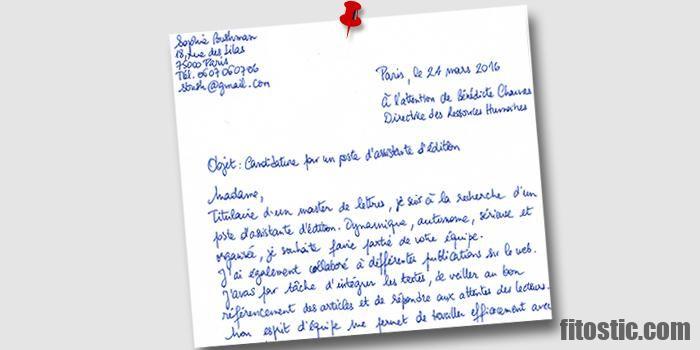 Sophie Bushman
18, rue des Lilas
75000 Paris
Tél. 0607060706
sbush@gmail.com
Paris, le 24 mars 2016
À l'attention de Bénédicte Chauvas
Directrice des Ressources Humaines
Objet : Candidature pour un poste d'assistante d'édition
Madame,
Titulaire d'un master de lettres, je suis à la recherche d'un
poste d'assistante d'édition. Dynamique, autonome, sérieuse et
organisée, je souhaite faire partie de votre équipe.
J'ai également collaboré à différentes publications sur le web.
J'avais par tâche d'intégrer les textes, de veiller au bon
référencement des articles et de répondre aux attentes des lecteurs.
Mon esprit d'équipe me permet de travailler efficacement avec
fitostic.com